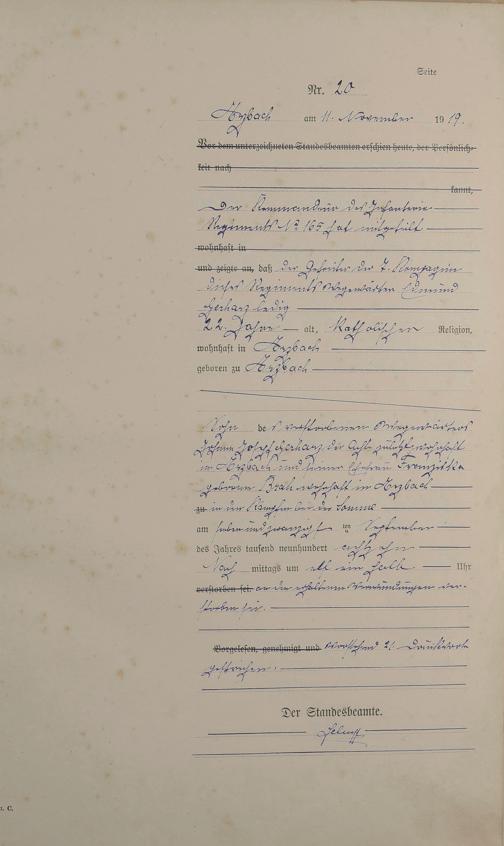 Seite
Nr. 20
Arzbach am 11. November 1919.
Vor dem unterzeichneten Standesbeamten erschien heute, der Persönlich-
keit nach
kannt,
Der Kommandeur des Infanterie-
Regiments No 165 hat mitgeteilt
wohnhaft in
und zeigte an, daß der Gefreiter der 7. Kompagnie
dieses Regiments Edmund
Gerharz ledig
22 Jahre alt, Katholischer Religion,
wohnhaft in Arzbach
geboren zu Arzbach
Sohn des verstorbenen
Johann Joseph Gerharz der zuletzt wohnhaft
in Arzbach und seiner Ehefrau Franziska
geborene wohnhaft in Arzbach
zu in den Kämpfen bei der Somme
am sieben und zwanzigsten September
des Jahres tausend neunhundert achtzehn
Nach mittags um ein halb Uhr
verstorben sei. an den erhaltenen Verwundungen ver-
storben sei.
Vorgelesen, genehmigt und Vorstehend 21 Druckworte
gestrichen.
Der Standesbeamte.
r. C.